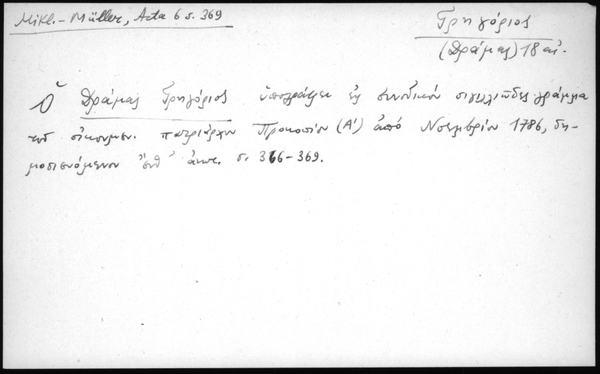 Mikl.-Müller, Acta 6 σ. 369
Γρηγόριος
(Δράμας) 18 αἰ.
Ὁ Δράμας Γρηγόριος ὑπογράφει εἰς συνοδικὸν σιγιλλιῶδες γράμμα
τοῦ οἰκουμεν. πατριάρχου Προκοπίου (Α') ἀπὸ Νοεμβρίου 1786, δη-
μοσιευόμενον ἔνθ' ἀνωτ. σ. 366-369.